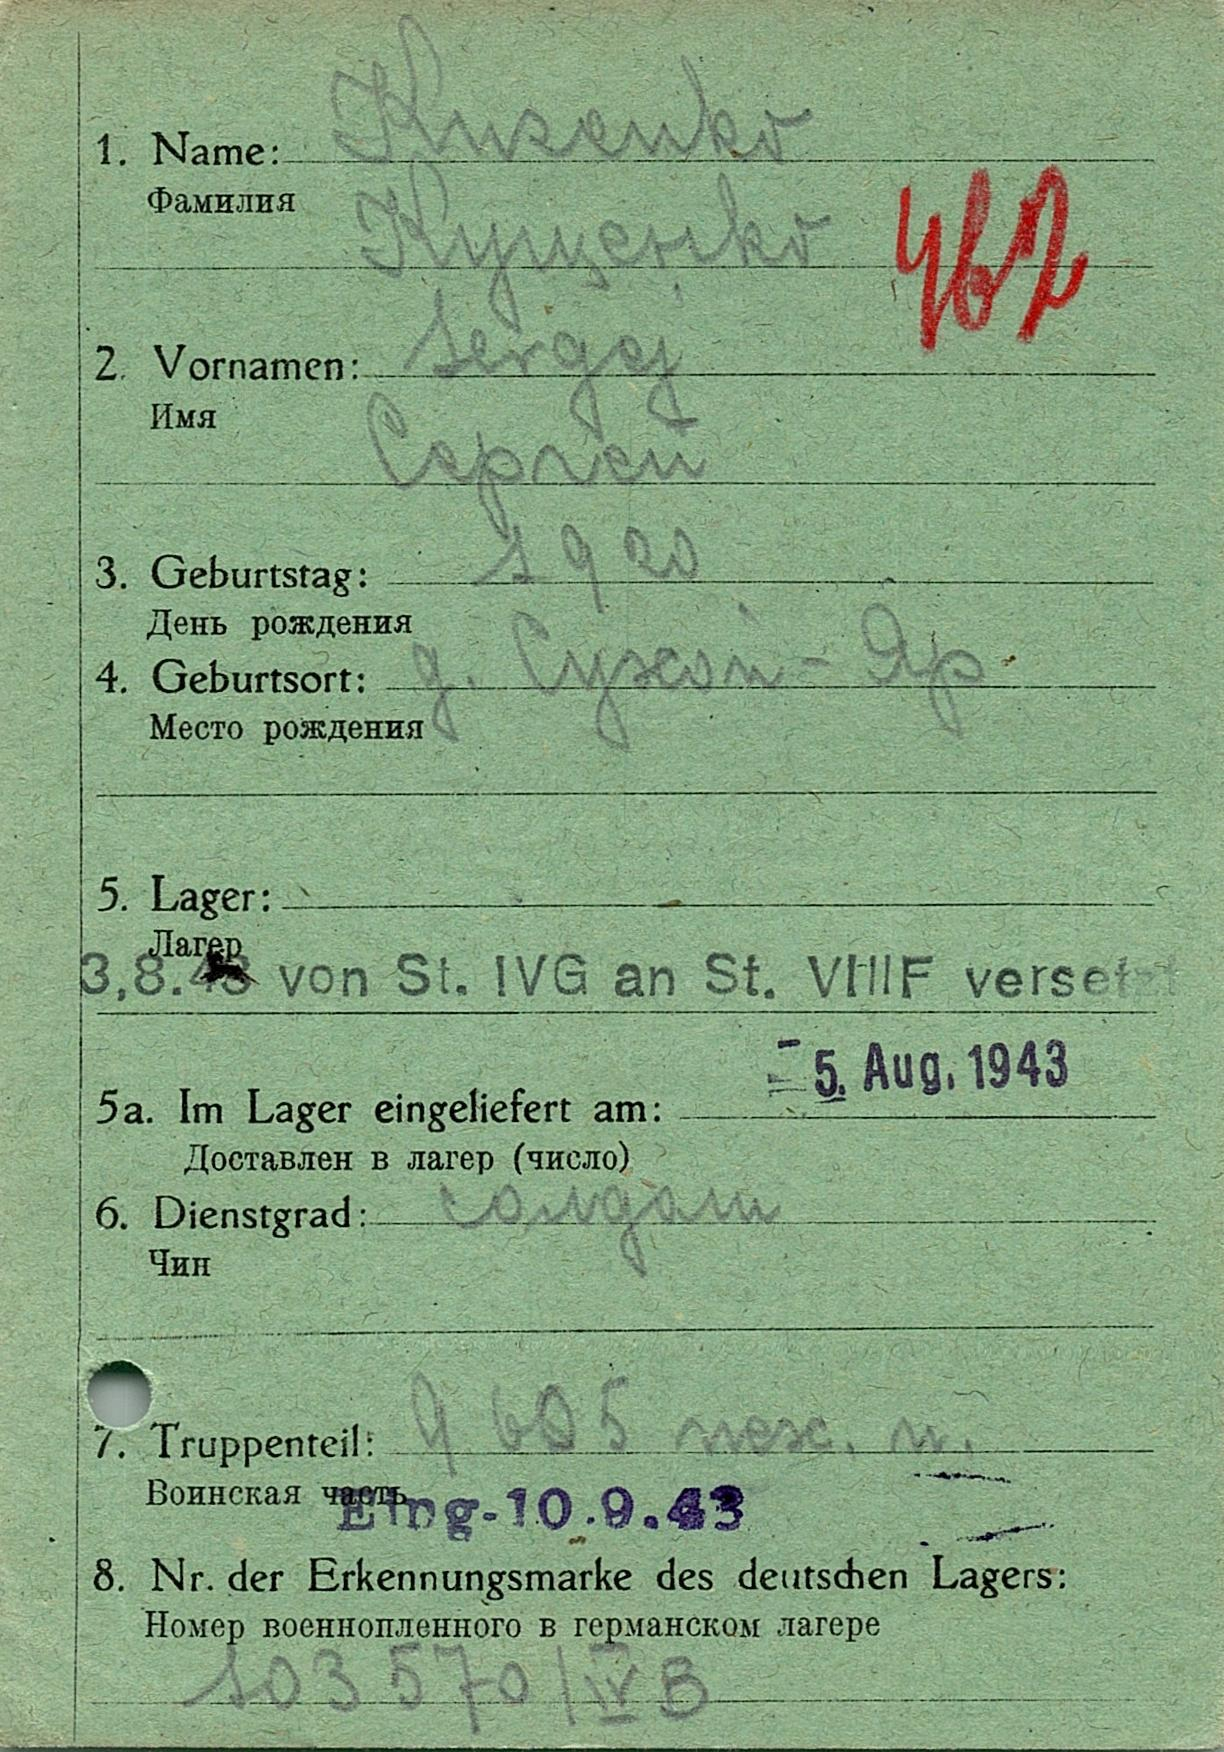 1. Name: Kuzenko
Фамилия
Куценко
462
2. Vornamen: Sergej
Имя
Сергей
3. Geburtstag: 1920
День рождения
4. Geburtsort: д. Сухой-Яр
Место рождения
5. Lager:
Лагер
3,8.43 von St. IVG an St. VIIIF versetzt
5. Aug. 1943
5a. Im Lager eingeliefert am:
Доставлен в лагер (число)
6. Dienstgrad: солдат
Чин
7. Truppenteil: 605 пех. п.
Воинская часть
Eing-10.9.43
8. Nr. der Erkennungsmarke des deutschen Lagers:
Номер военнопленного в германском лагере
103570/IV B